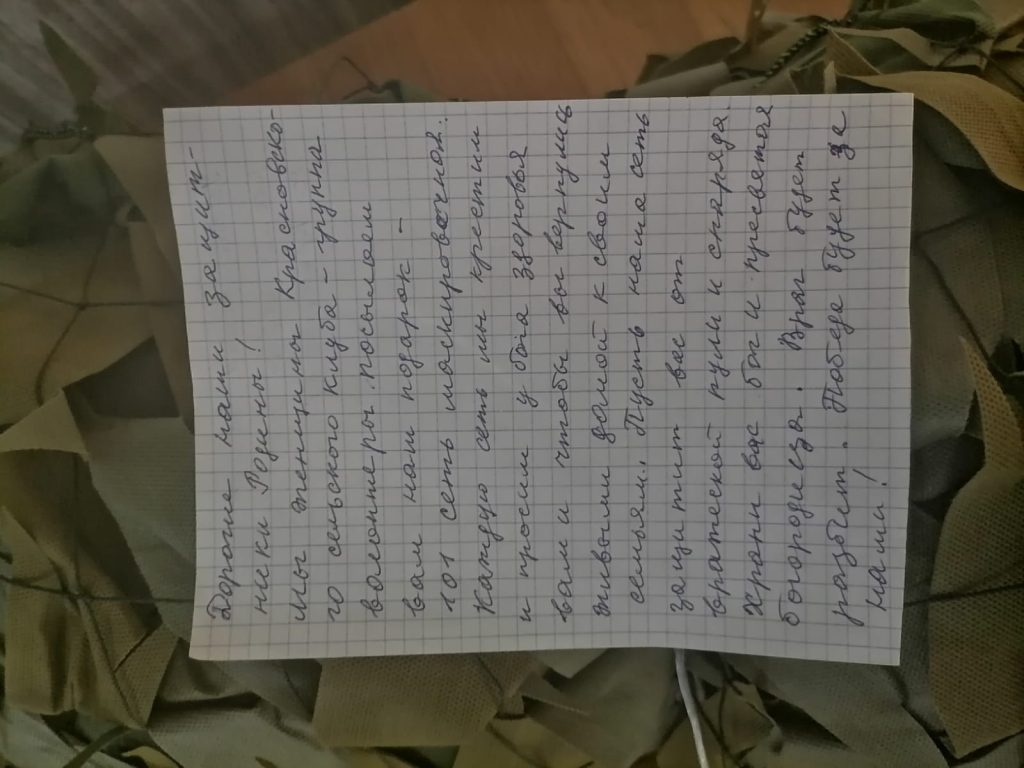 Дорогие наши защит-
ники Родины!
Мы женщины Красновско-
го сельского клуба – группа
волонтеры посылаем
вам наш подарок –
101 сеть маскировочная.
Каждую сеть мы крестим
и просим у бога здоровья
вам и чтобы вы вернулись
живыми домой к своим
семьям. Пусть наша сеть
защитит вас от
вражеской пули и снаряда
Храни вас бог и пресвятая
богородица. Враг будет
разбит. Победа будет за
нами!